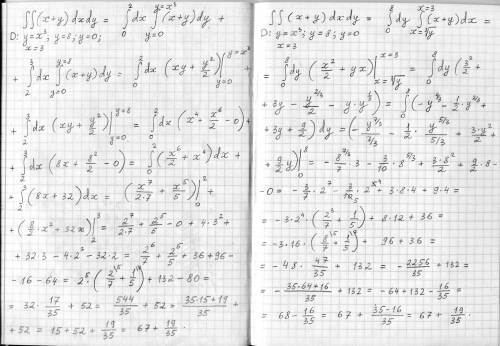 ∬(x+y)dxdy = ∫₀²dx ∫_{y=0}^{y=x³}(x+y)dy +
D: y=x³; y=8; y=0;
x=3
+ ∫₂³dx ∫_{y=0}^{y=8}(x+y)dy = ∫₀²dx (xy+y²/2)|_{y=0}^{y=x³} +
+ ∫₂³dx (xy+y²/2)|_{y=0}^{y=8} = ∫₀²dx (x⁴+x⁶/2-0)+
+ ∫₂³dx (8x+8²/2-0) = ∫₀²(x⁶/2+x⁴)dx +
+ ∫₂³(8x+32)dx = (x⁷/2·7+x⁵/5)|₀² +
+ (8/2·x²+32x)|₂³ = 2⁷/2·7+2⁵/5-0+4·3²+
+ 32·3-4·2²-32·2 = 2⁶/7+2⁵/5+36+96-
-16-64 = 2⁵(2/7+1/5)+132-80=
= 32·17/35+52 = 544/35+52 = 35·15+19/35 +
+52 = 15+52+19/35 = 67+19/35.
∬(x+y)dxdy = ∫₀⁸dy ∫_{x=∛y}^{x=3}(x+y)dx =
D: y=x³; y=8; y=0
x=3
= ∫₀⁸dy (x²/2+yx)|_{x=∛y}^{x=3} = ∫₀⁸dy(3²/2+
+3y-y^{2/3}/2-y·y^{1/3}) = ∫₀⁸(-y^{4/3}-1/2·y^{2/3}+
+3y+9/2)dy=(-y^{7/3}/7/3-1/2·y^{5/3}/5/3+3·y²/2+
+9/2y)|₀⁸ = -8^{7/3}/7·3-3/10·8^{5/3}+3·8²/2+9/2·8-
-0= -3/7·2⁷-3/10·2⁵+3·8·4+9·4=
= -3·2⁴·(2³/7+1/5)+8·12+36=
= -3·16(8/7+1/5)+96+36=
= -48·47/35+132 = -2256/35+132=
= -35·64+16/35+132 = -64+132-16/35=
= 68-16/35 = 67+35-16/35 = 67+19/35.